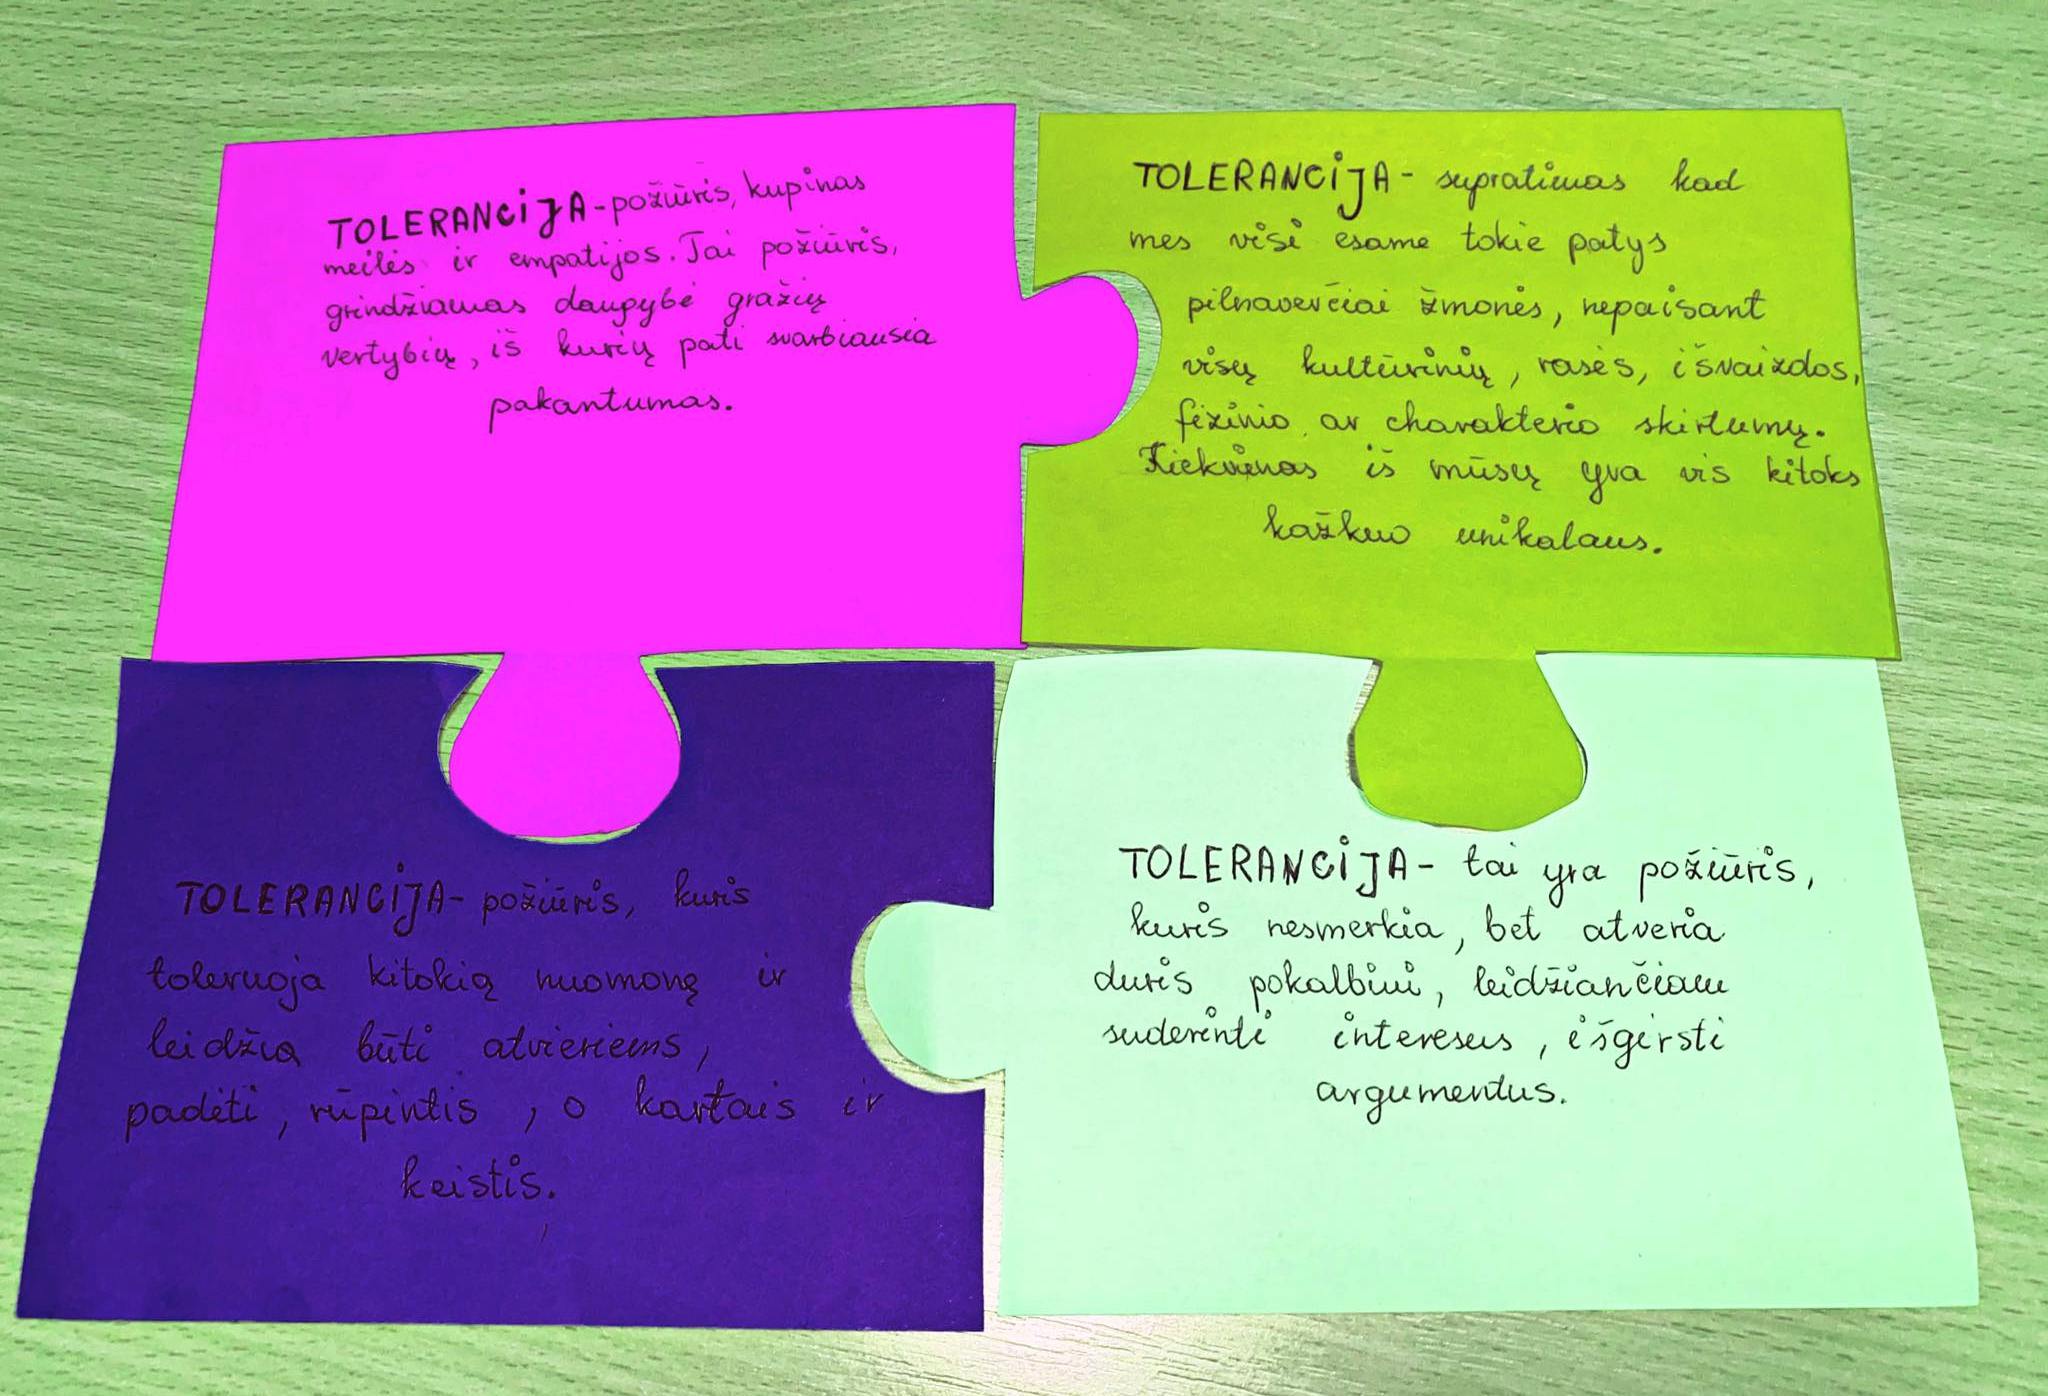 TOLERANCIJA - požiūris, kupinas
meilės ir empatijos. Tai požiūris,
grindžiamas daugybė gražių
vertybių, iš kurių pati svarbiausia
pakantumas.
TOLERANCIJA - supratimas kad
mes visi esame tokie patys
pilnaverčiai žmonės, nepaisant
visų kultūrinių, rasės, išvaizdos,
fizinio ar charakterio skirtumų.
Kiekvienas iš mūsų yra vis kitoks
kažkuo unikalaus.
TOLERANCIJA - požiūris, kuris
toleruoja kitokią nuomonę ir
leidžia būti atviriems,
padėti, rūpintis, o kartais ir
keistis.
TOLERANCIJA - tai yra požiūris,
kuris nesmerkia, bet atveria
duris pokalbiui, leidžiančiam
suderinti interesus, išgirsti
argumentus.